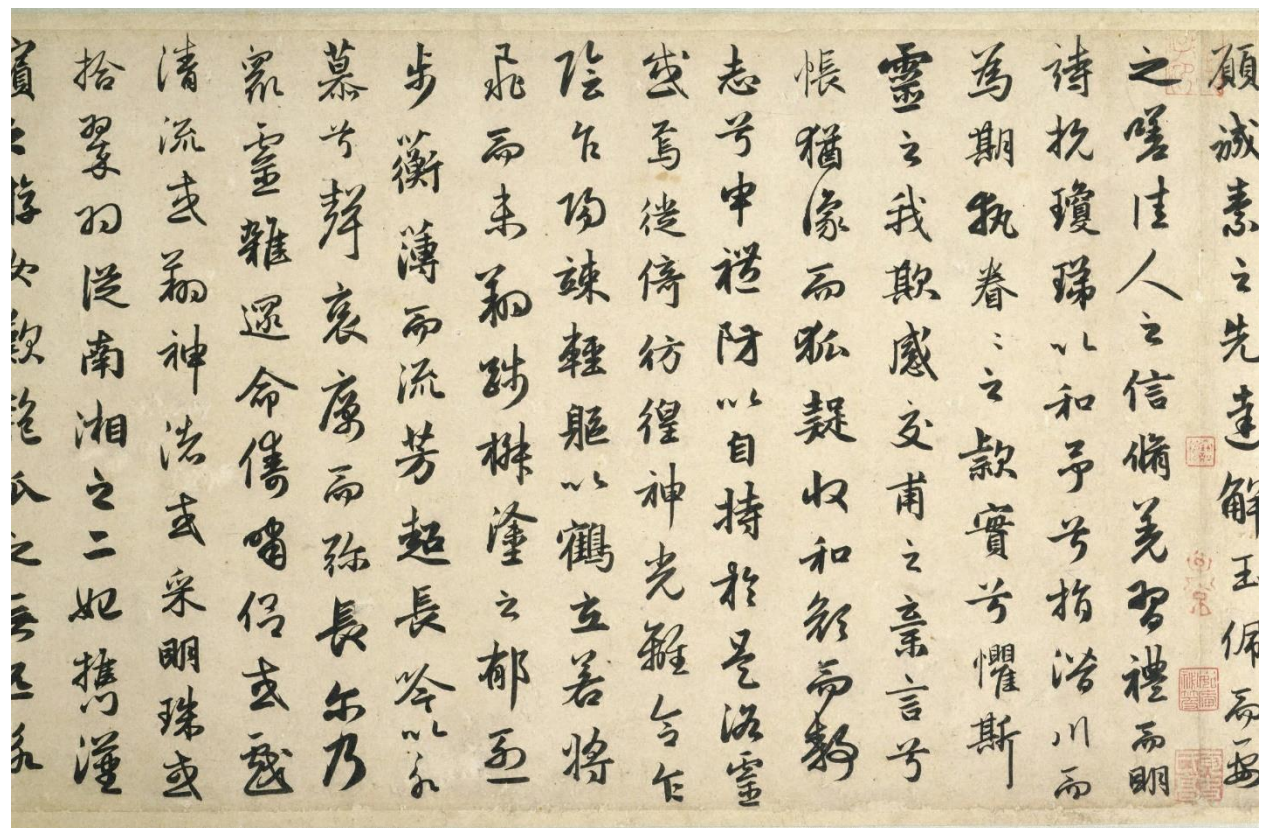 願誠素之先達解玉佩而要
之嗟佳人之信脩羌習禮而明
詩抗瓊珶以和予兮指潛川而
為期執眷〻之款實兮懼斯
靈之我欺感交甫之棄言兮
悵猶豫而狐疑收和顏而靜
志兮申禮防以自持於是洛靈
感焉徙倚彷徨神光離合乍
陰乍陽竦輕軀以鶴立若將
飛而未翔踐椒塗之郁烈
步蘅薄而流芳超長吟以永
慕兮聲哀厲而弥長尔乃
眾靈雜遝命儔嘯侶或戲
清流或翔神渚或采明珠或
拾翠羽從南湘之二妃攜漢
濱之游女歎匏瓜之無匹詠